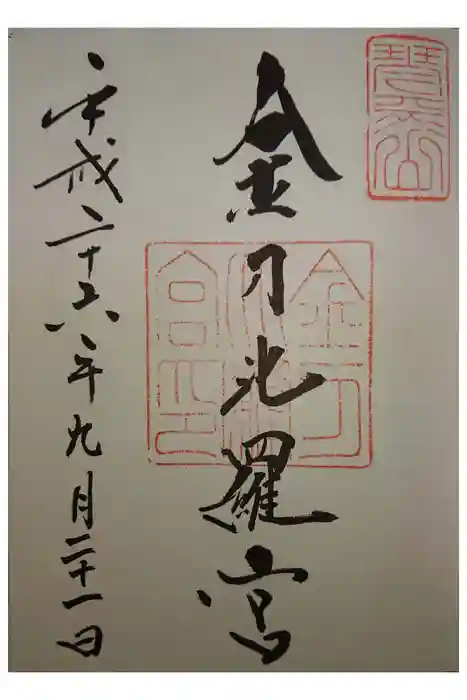 琴平山
金刀比羅宮
金刀
比羅
宮印
平成二十六年九月二十一日